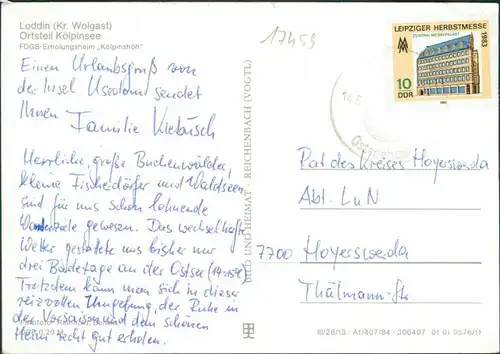 Loddin (Kr. Wolgast)
Ortsteil Kölpinsee
FDGB-Erholungsheim „Kölpinshöh"
17459
LEIPZIGER HERBSTMESSE
1983
ZENTRAL-MESSEPALAST
10
DDR
Einen Urlaubsgruß von
der Insel Usedom sendet
Ihnen Familie Kiebusch
Herrliche, große Buchenwälder,
kleine Fischerdörfer und Waldseen
sind für uns schon lohnende
Wanderziele gewesen. Das wechselhafte
Wetter gestattete uns bisher nur
drei Badetage an der Ostsee
Trotzdem kann man sich in dieser
reizvollen Umgebung, der Ruhe in
der Vorsaison und dem schönen
Heim recht gut erholen.
BILD UND HEIMAT REICHENBACH (VOGTL)
Rat des Kreises Hoyerswerda
Abt. LuN
7700 Hoyerswerda
Thälmann-Str.
III/26/13 A1/407/84 300407 01 01 0576/11